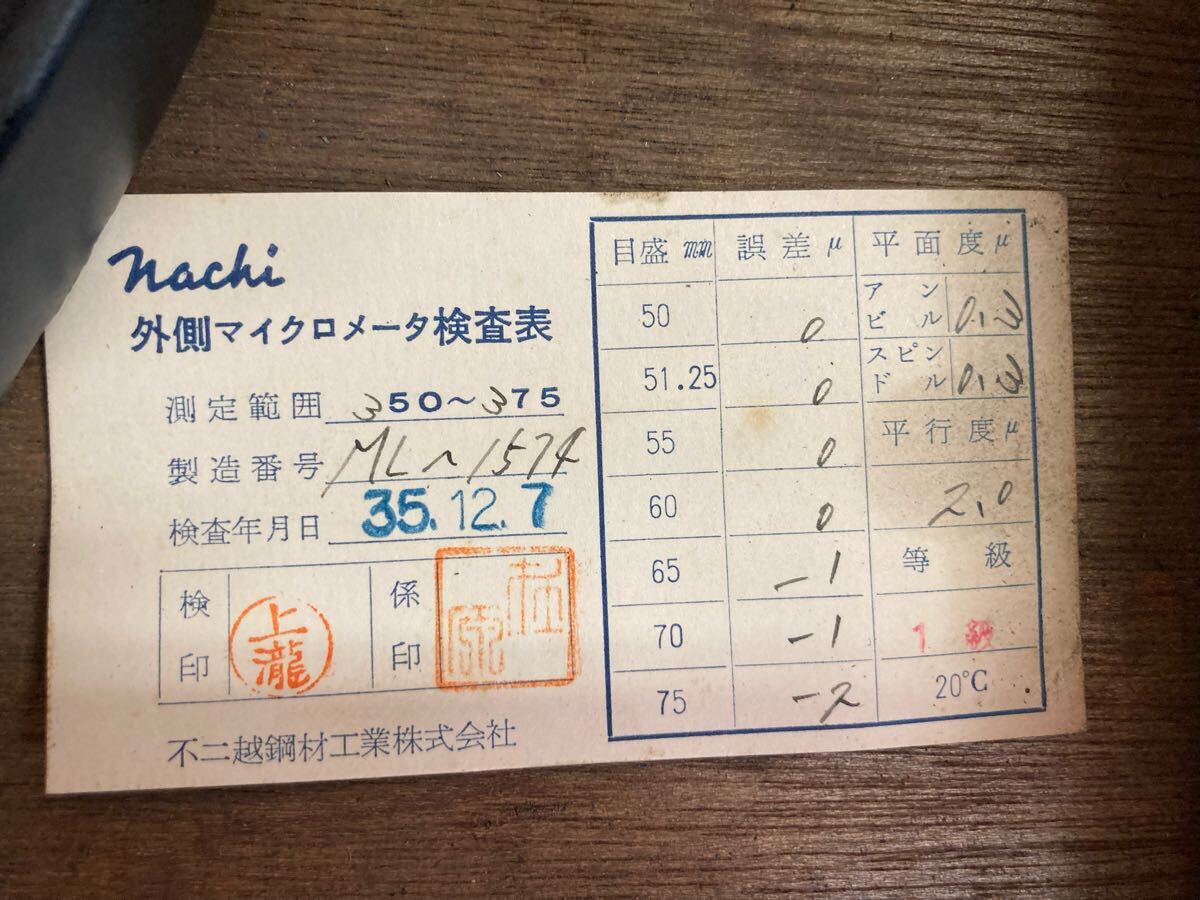 nachi
外側マイクロメータ検査表
測定範囲 350～375
製造番号 ML~1574
検査年月日 35.12.7
検印 上瀧 係印
不二越鋼材工業株式会社
目盛 mm 誤差 μ
50 0
51.25 0
55 0
60 0
65 -1
70 -1
75 -2
平面度μ
アンビル 0.3
スピンドル 0.3
平行度μ
2.0
等級
1級
20°C